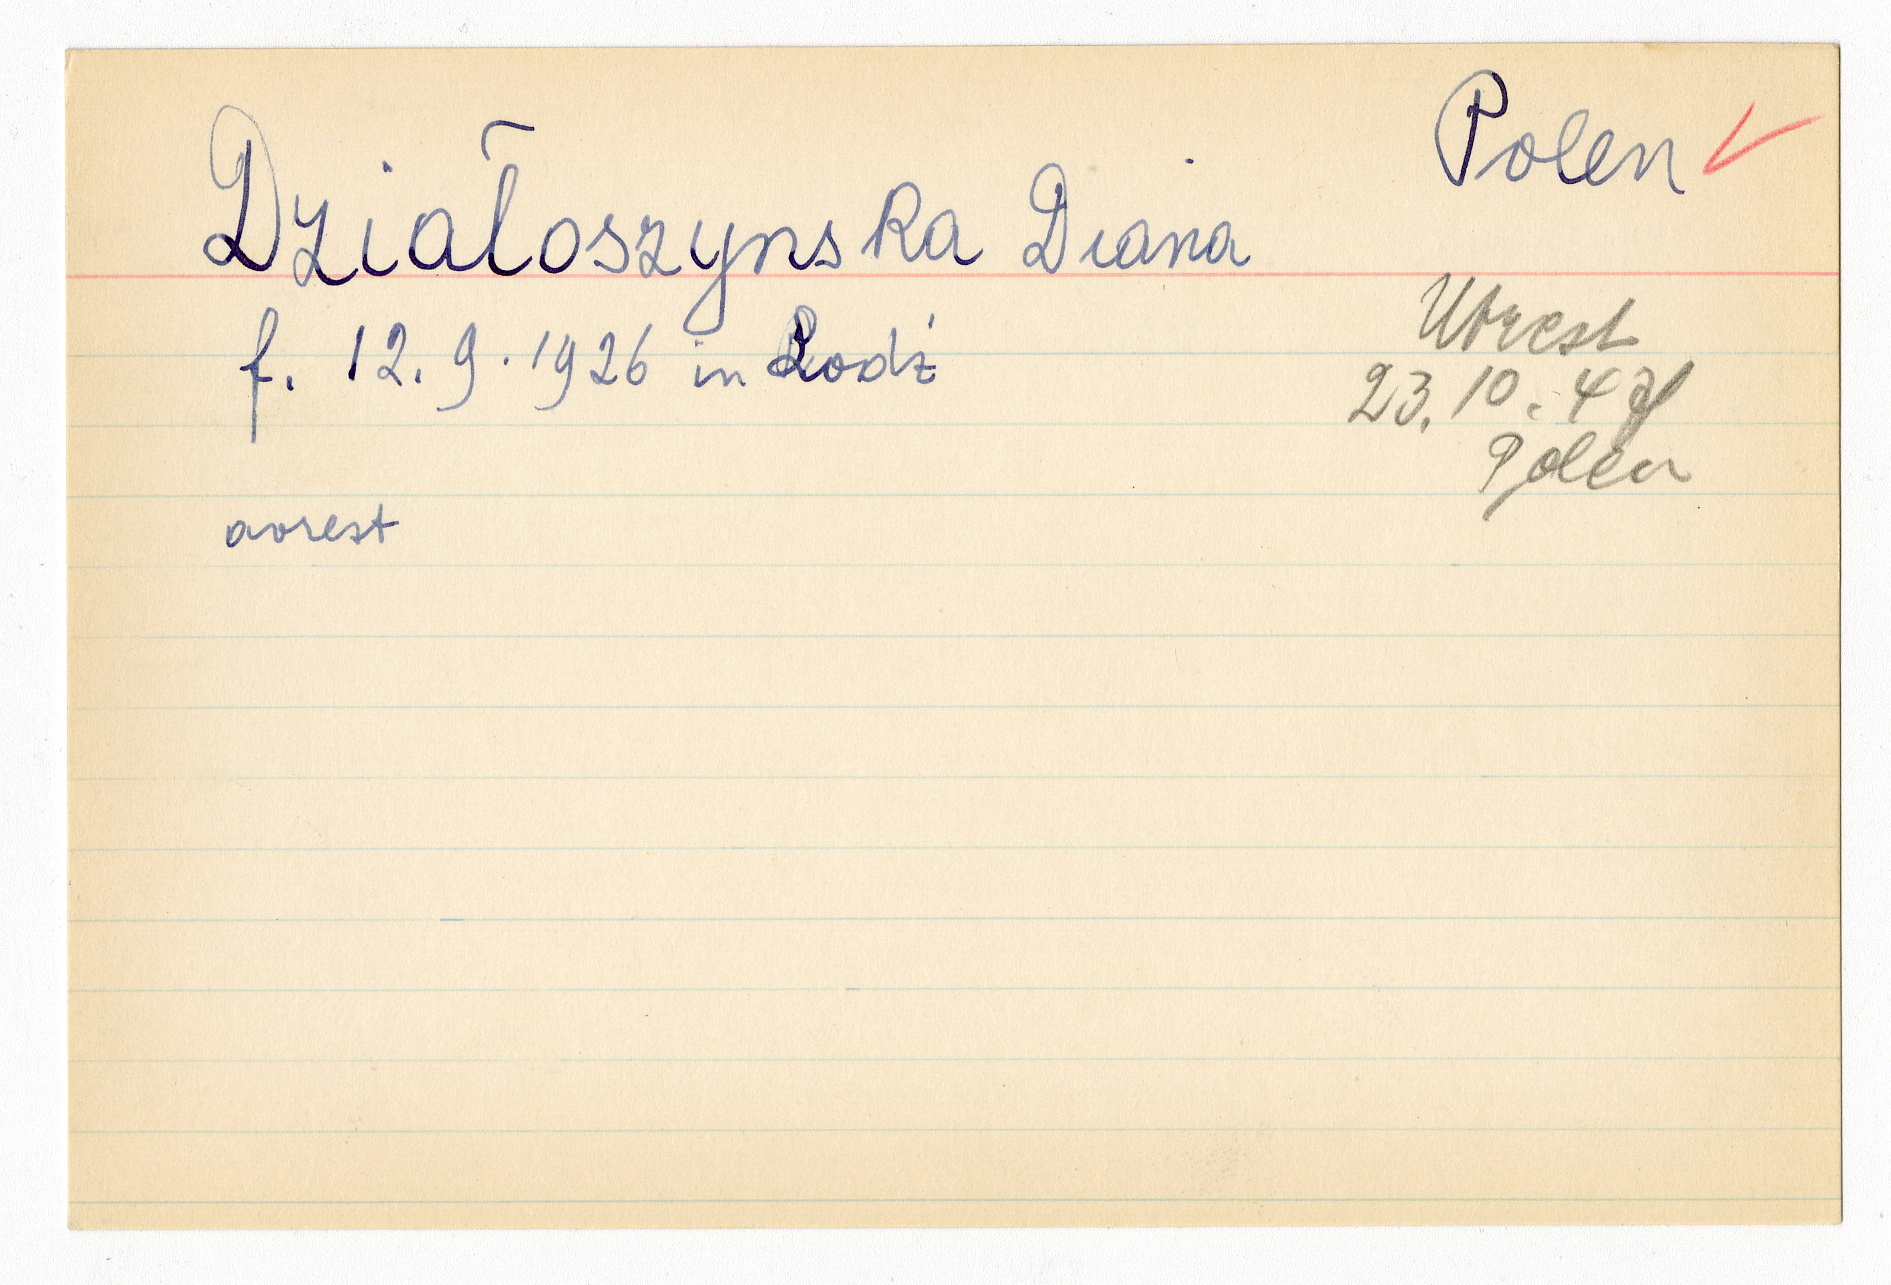 Polen
Działoszynska Diana
f. 12.9.1926 in Lodź
Utrest
23.10.47
Polen
avrest